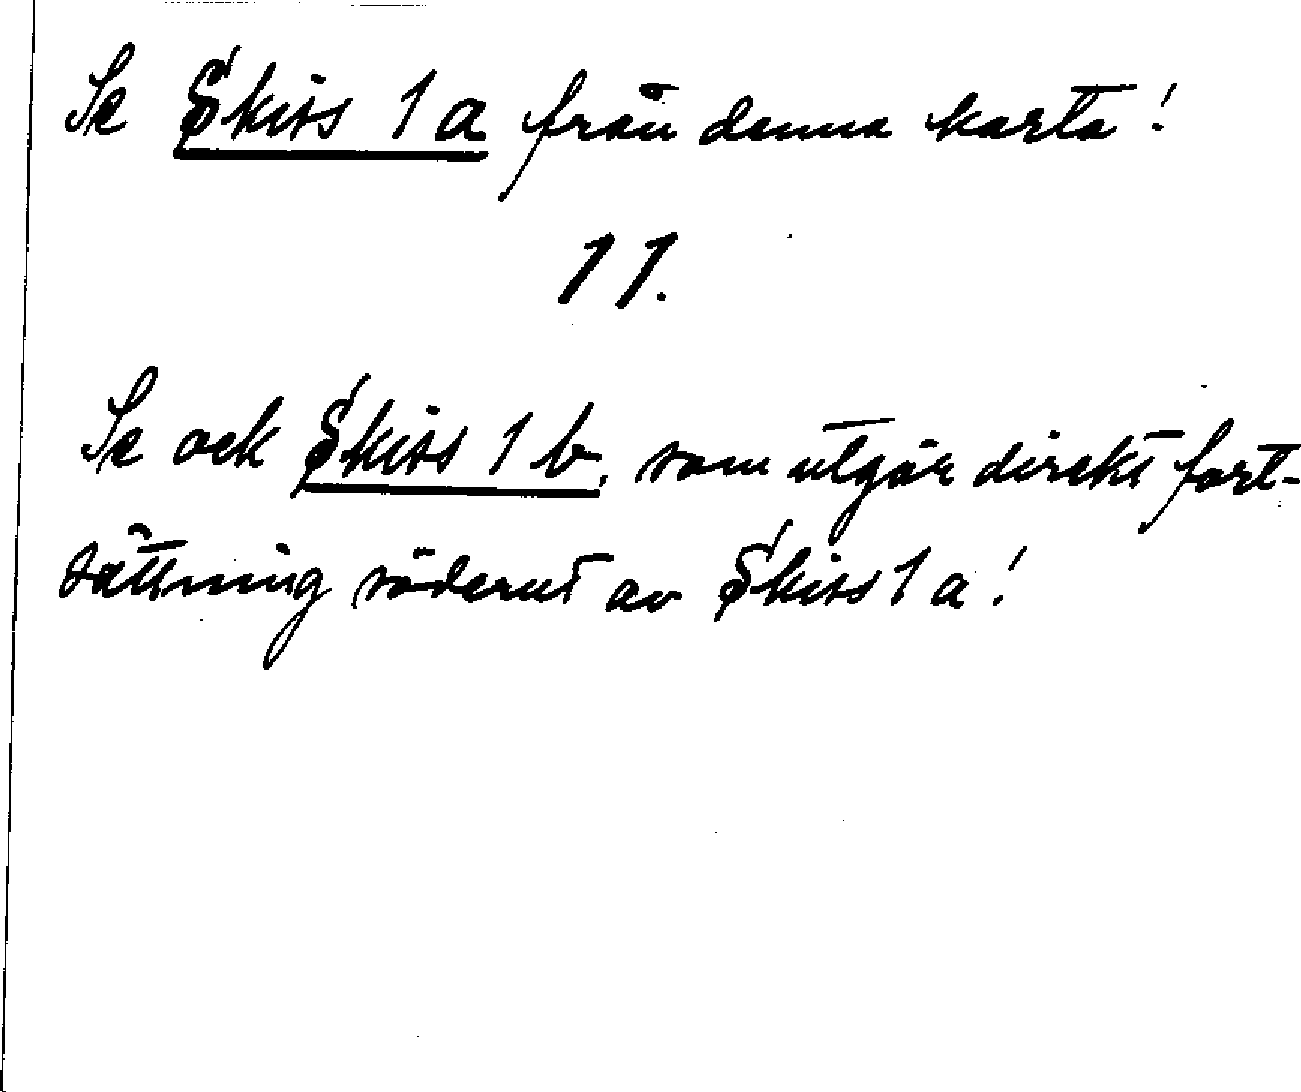 Se Skiss 1 a från denna karta!
11.
Se ock Skiss 1 b, som utgör direkt fort-
sättning söderut av Skiss 1 a!